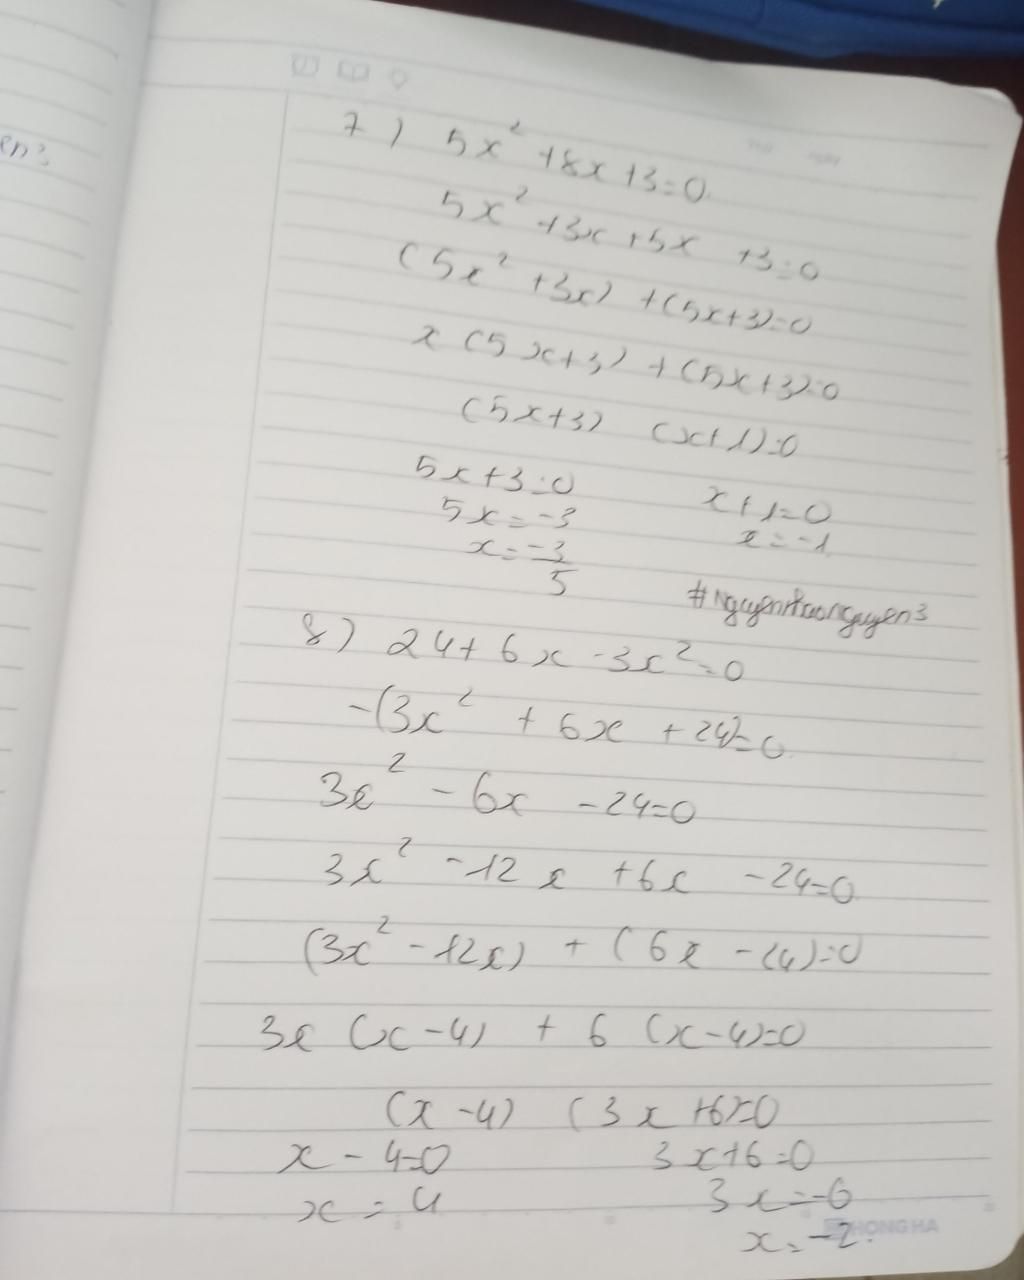 en3
7) 5x² +8x+3=0
5x² +3x +5x +3=0
(5x² +3x) +(5x+3)=0
x (5x+3) +(5x+3)=0
(5x+3) (x+1)=0
5x+3=0 x+1=0
5x=-3 x=-1
x=-3/5
8) 24+6x-3x²=0
-(3x² + 6x +24)=0
3x² - 6x -24=0
3x² -12x +6x -24=0
(3x² -12x) + (6x -24)=0
3x (x-4) + 6 (x-4)=0
(x-4) (3x+6)=0
x-4=0 3x+6=0
x = 4 3x=-6
x=-2.
HONG HA